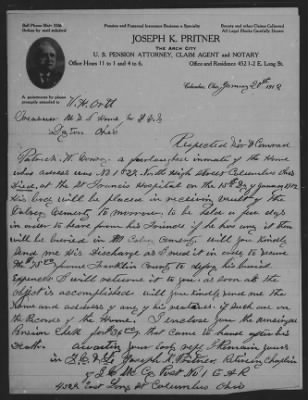 Bell Phone Main
Notary by mail solicited
Pension and Personal Insurance Business a Specialty
Bounty and other Claims Collected
All Legal Blanks Carefully Drawn
JOSEPH K. PRITNER
THE ARCH CITY
U. S. PENSION ATTORNEY, CLAIM AGENT AND NOTARY
Office Hours 11 to 1 and 4 to 6.
Office and Residence 452 1-2 E. Long St.
Columbus, Ohio, January 20th 1912
A pensioners by phone
promptly attended to
W. H. Ortt
Treasurer N. D. S. Home
Dayton Ohio
Respected Sir & Comrad
Patrick H. a furloughed inmate of the Home
whose address was No 1522 North High Street Columbus Ohio
Died, at the St Francis Hospital on the 18th Day of January 1912
His body will be placed in receiving vault of the
Calvary Cemetery to morrow, to be held a few days
in order to hear from his Friends if he has any if then
will be burried in Mt Calvary Cemetery. Will you kindly
send me His Discharge as I need it in order to secure
the 75 from Franklin County to defray his burial
Expences. I will returne it to you, as soon as the
object is accomplished. will you kindly send me the
Name and address of any of his relatives, if such are on
the Records of the Home. I enclose you the
Pension Check for that came to hand after his
death. Awaiting your early reply I Remain yours
in F. C. & L. Joseph K. Pritner, Retireing Chaplin
of Post No 1 G A R
452½ East Long St Columbus Ohio